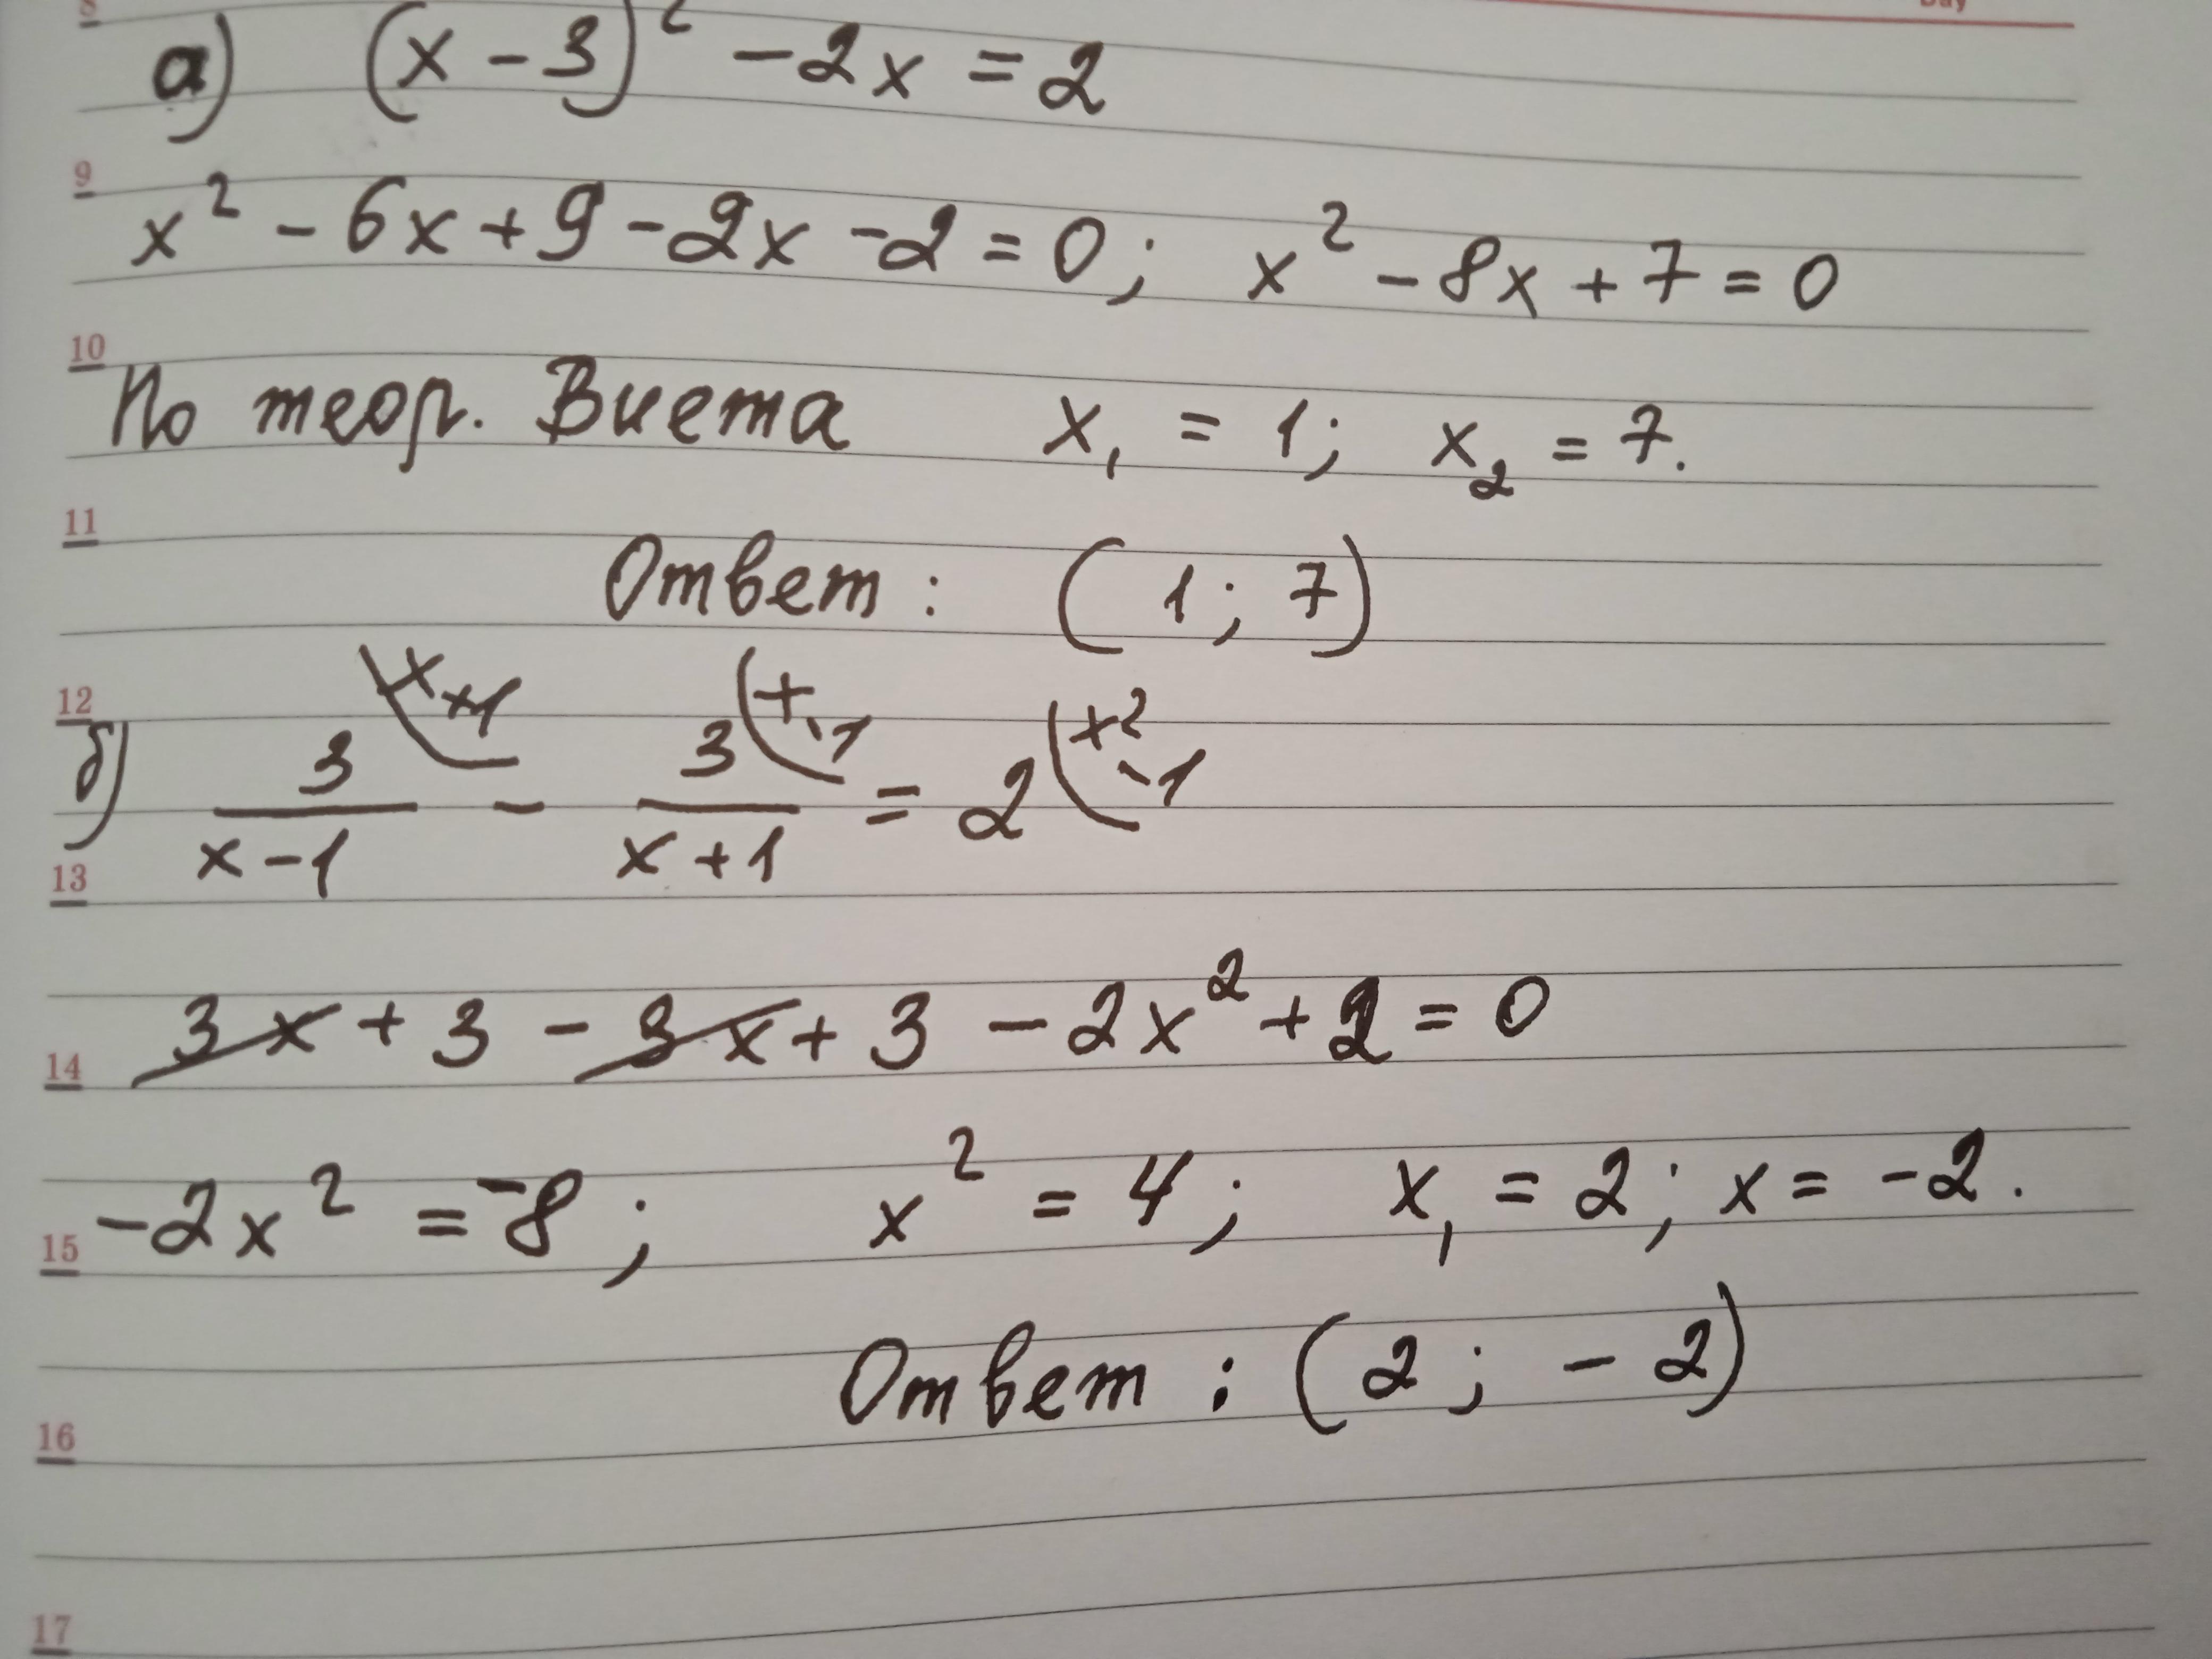 8 Day
а) (x - 3)² - 2x = 2
9
x² - 6x + 9 - 2x - 2 = 0; x² - 8x + 7 = 0
10
По теор. Виета x₁ = 1; x₂ = 7.
11
Ответ: (1; 7)
12
б) 3/(x-1) (x+1 - 3/(x+1) (x-1 = 2 (x²-1
13
3x + 3 - 3x + 3 - 2x² + 2 = 0
14
-2x² = -8; x² = 4; x₁ = 2; x = -2.
15
Ответ: (2; -2)
16
17